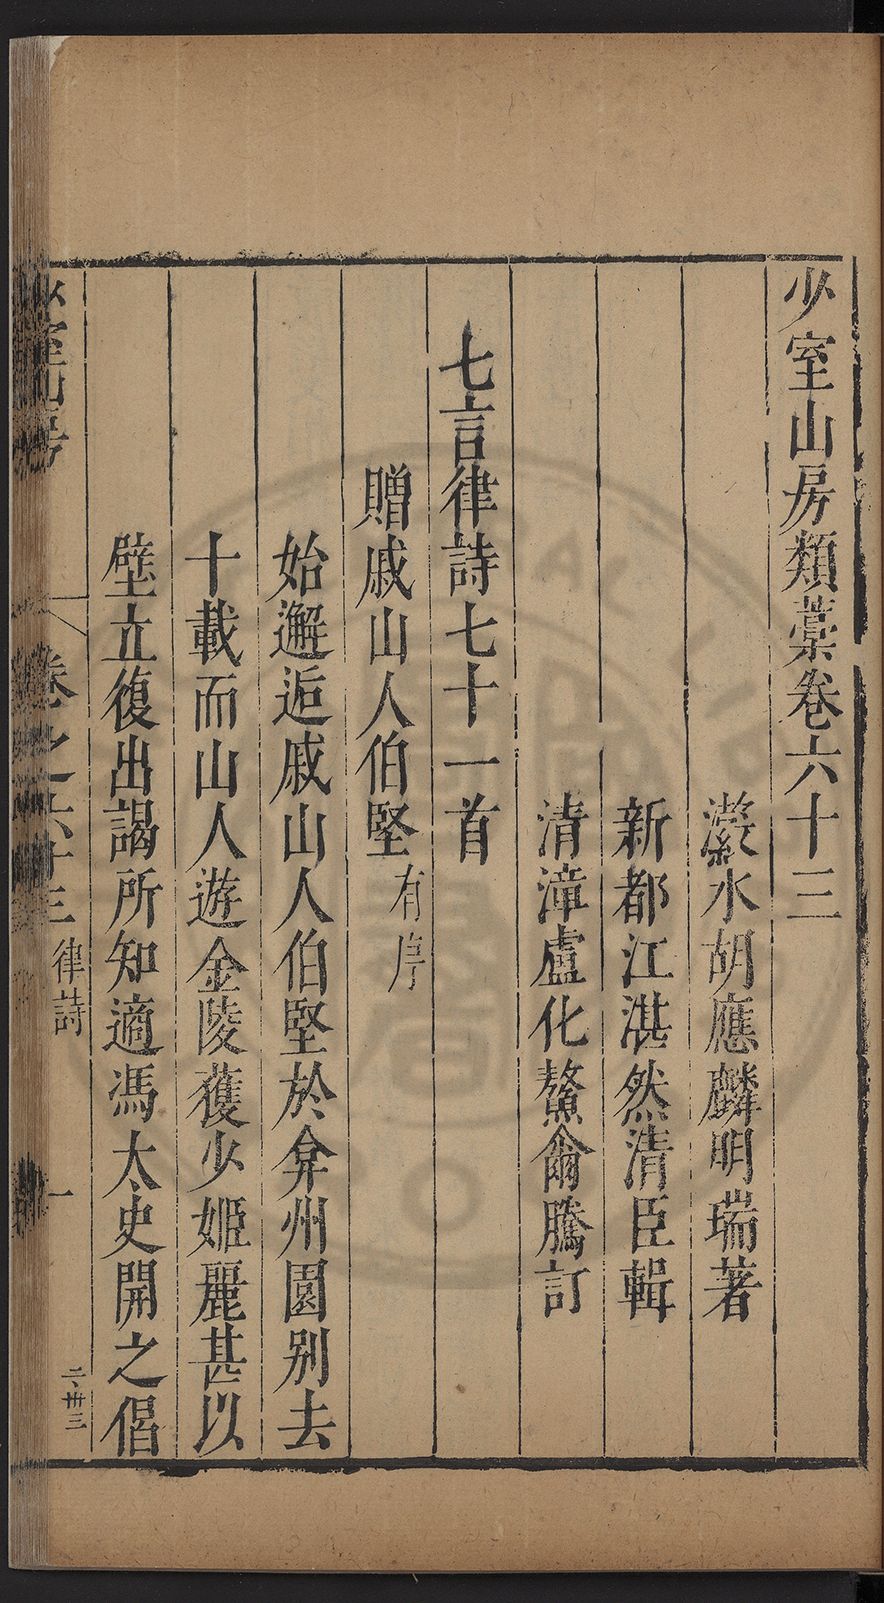 少室山房類藁卷六十三
瀫水胡應麟明瑞著
新都江湛然清臣輯
清漳盧化鰲侖騰訂
七言律詩七十一首
贈戚山人伯堅有序
始邂逅戚山人伯堅於弇州園別去
十載而山人遊金陵獲少姬麗甚以
壁立復出謁所知適馮太史開之偕
少室山房 卷之六十三 律詩 一 二、卅三